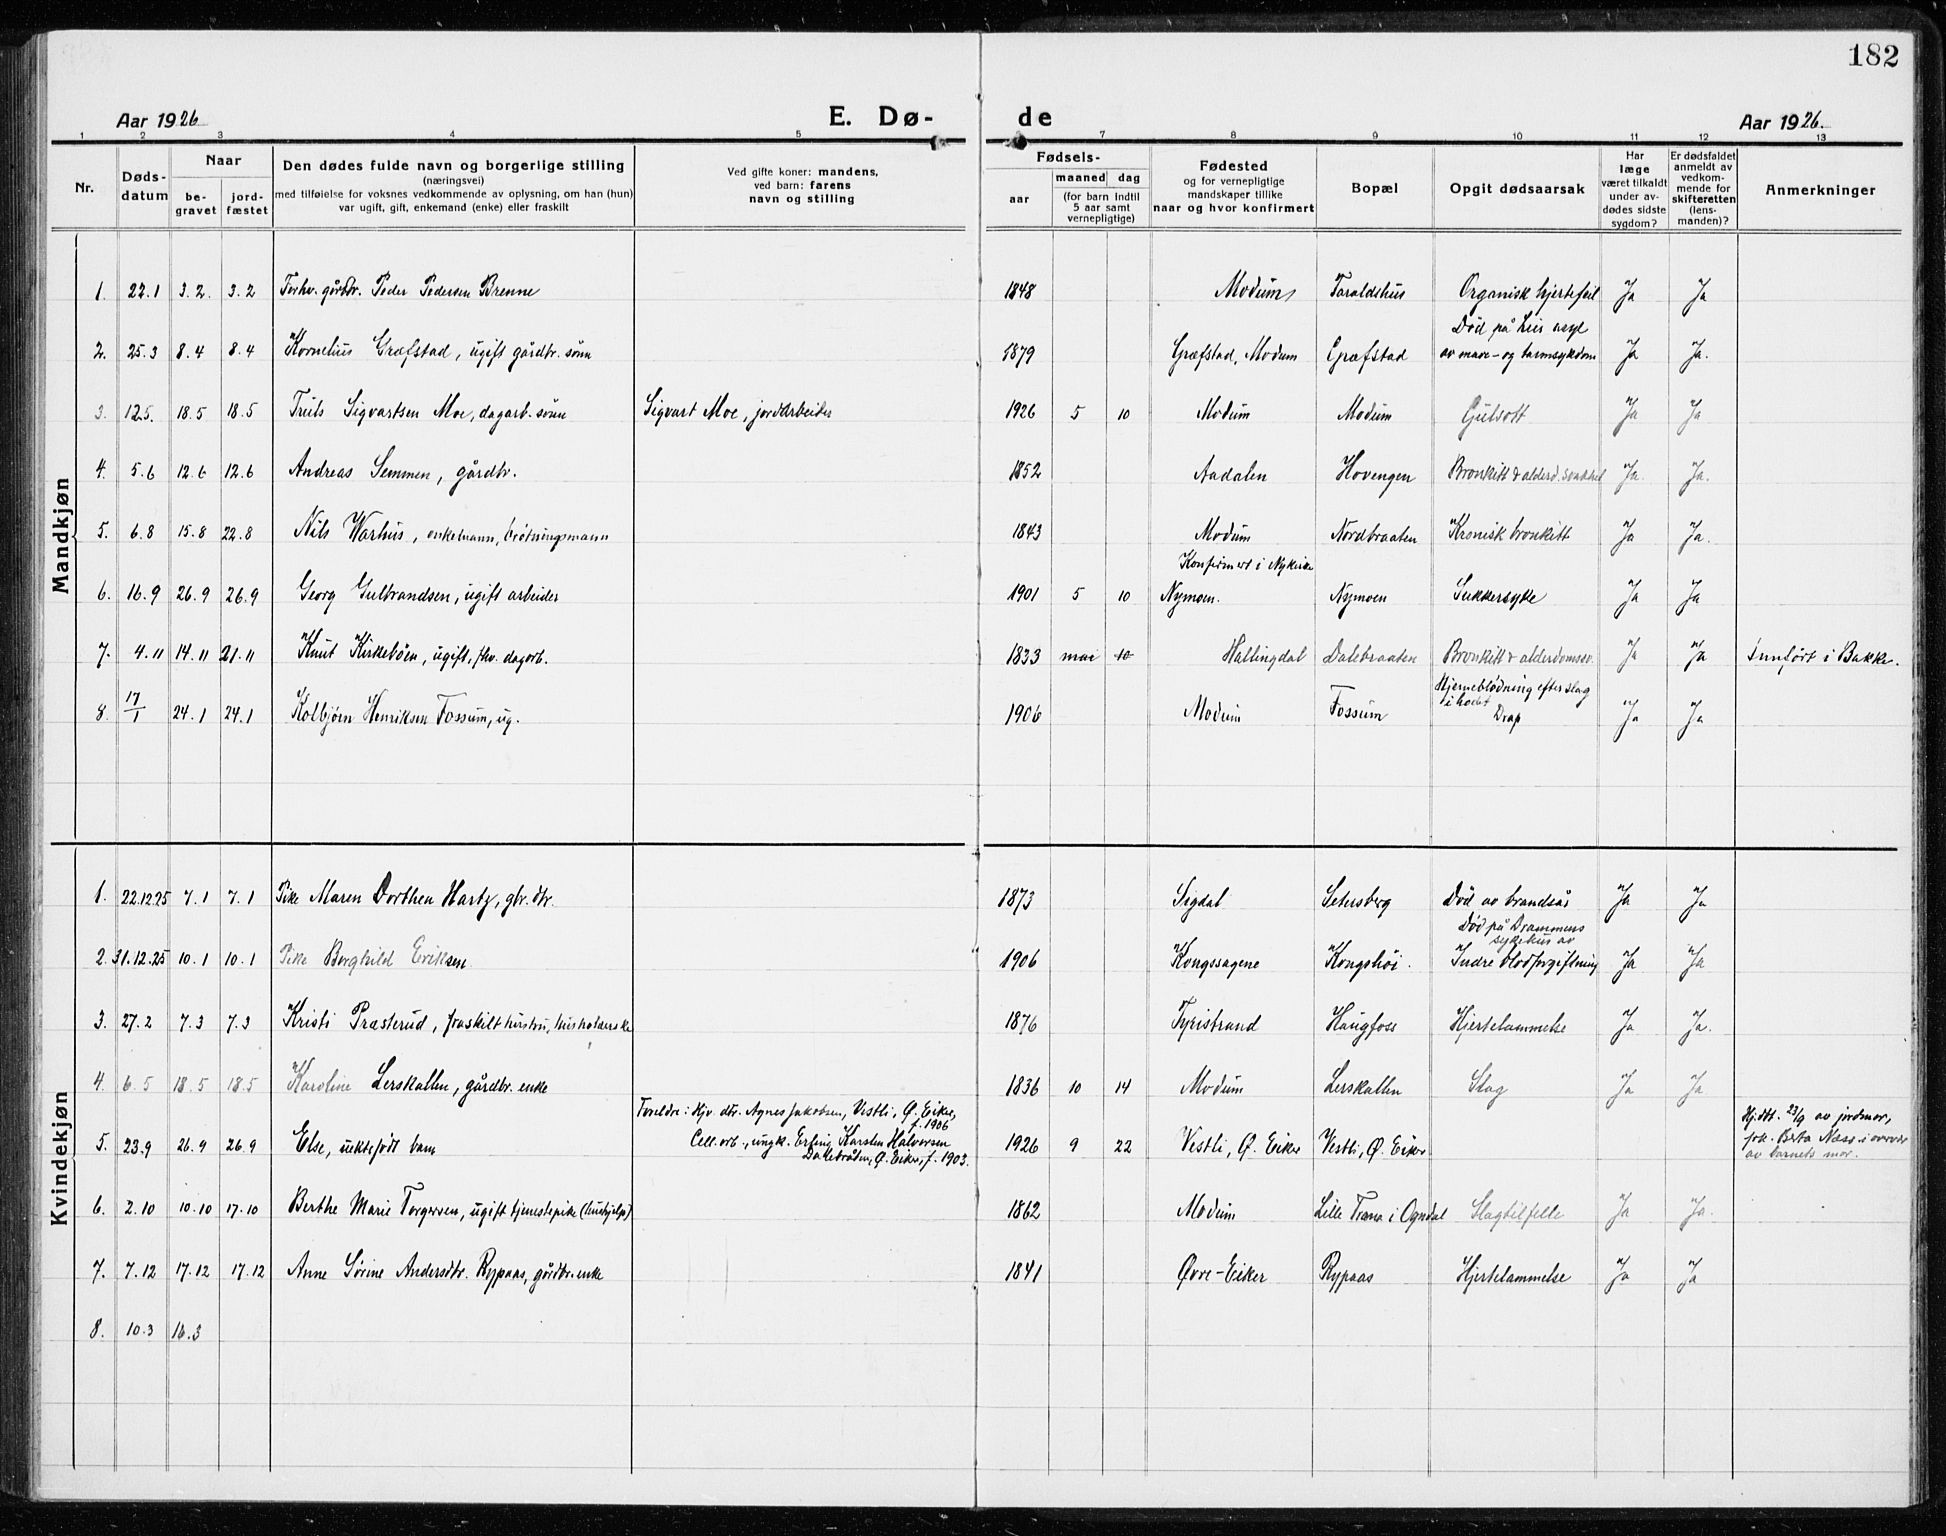 182
Aar 1926
E. Dø-
de
Aar 1926.
1 2 3 4 5 7 8 9 10 11 12 13
Nr.
Døds-
datum
Naar
be-
gravet
jord-
fæstet
Den dødes fulde navn og borgerlige stilling
(næringsvei)
med tilføielse for voksnes vedkommende av oplysning, om han (hun)
var ugift, gift, enkemand (enke) eller fraskilt
Ved gifte koner: mandens,
ved barn: farens
navn og stilling
Fødsels-
aar
maaned dag
(for barn indtil
5 aar samt
vernepligtige)
Fødested
og for vernepligtige
mandskaper tillike
naar og hvor konfirmert
Bopæl
Opgit dødsaarsak
Har
læge
været tilkaldt
under av-
dødes sidste
sygdom?
Er dødsfaldet
anmeldt av
vedkom-
mende for
skifteretten
(lens-
manden)?
Anmerkninger
Mandkjøn
1. 22.1 3.2. 3.2 Forhv. gårdbr. Peder Pedersen Brenne 1848 Modum Taraldshus Organisk hjertefeil Ja Ja
Død på Lier asyl
2. 25.3 8.4 8.4 Kornelius Græfstad, ugift gårdbr. sønn 1879 Græfstad, Modum Græfstad av mave- og tarmsykdom Ja Ja.
3. 12.5. 18.5 18.5 Truls Sigvartsen Moe, dagarb. sønn Sigvart Moe, jordarbeider 1926 5 10 Modum Modum Gulsott Ja Ja
4. 5.6 12.6 12.6 Andreas Semmen, gårdbr. 1852 Aadalen Hovengen Bronkitt & alderd. svakhet Ja. Ja.
5. 6.8 15.8 22.8 Nils Warhus, enkemann, brøtningsmann 1843 Modum Nordbraaten Kronisk bronkitt Ja Ja.
Konfirmert i Nykirke
6. 16.9 26.9 26.9 Georg Gulbrandsen, ugift arbeider 1901 5 10 Nymoen. Nymoen Sukkersyke Ja Ja
7. 4.11 14.11 21.11 Knut Kirkebøen, ugift, fhv. dagarb. 1833 mai 10 Hallingdal Dalebraaten Bronkitt & alderdomssv. Ja Ja Innført i Bakke.
Hjerneblødning efter slag
i hodet
8. 17/1 24.1 24.1 Kolbjørn Henriksen Fossum, ug. 1906 Modum Fossum Drap Ja Ja
Kvindekjøn
1. 22.12.25 7.1 7.1 Pike Maren Dorthea Hartz, gbr. dtr. 1873 Sigdal Setersberg Død av brandsår Ja Ja
Død på Drammens
sykehus av
2. 31.12.25 10.1 10.1 Pike Borghild Eriksen 1906 Kongssagene Kongshøi. Indre blodforgiftning Ja Ja
3. 27.2 7.3 7.3 Kristi Præsterud, fraskilt hustru, husholderske 1876 Tyristrand Haugfoss Hjertelammelse Ja Ja.
4. 6.5 18.5 18.5 Karoline Lerskallen, gårdbr. enke 1836 10 14 Modum Lerskallen Slag Ja Ja
Foreldre: Hjv. dtr. Agnes Jakobsen, Vestli, Ø. Eiker,
f. 1906
Cell. arb., ungk. Erling Karsten Halvorsen
Dalebråten, Ø. Eiker, f. 1903.
5. 23.9 26.9 26.9 Else, uektefødt barn 1926 9 22 Vestli, Ø. Eiker Vestli, Ø. Eiker
Hj.dt. 23/9 av jordmor,
frk. Berta Næss i nærvær
av barnets mor.
6. 2.10 10.10 17.10 Berthe Marie Torgersen, ugift tjenestepike (hushjelp) 1862 Modum Lille Trana i Ogndal Slagtilfelle Ja Ja.
7. 7.12 17.12 17.12 Anne Sørine Andersdtr. Rypaas, gårdbr. enke 1841 Øvre-Eiker Rypaas Hjertelammelse Ja Ja
8. 10.3 16.3